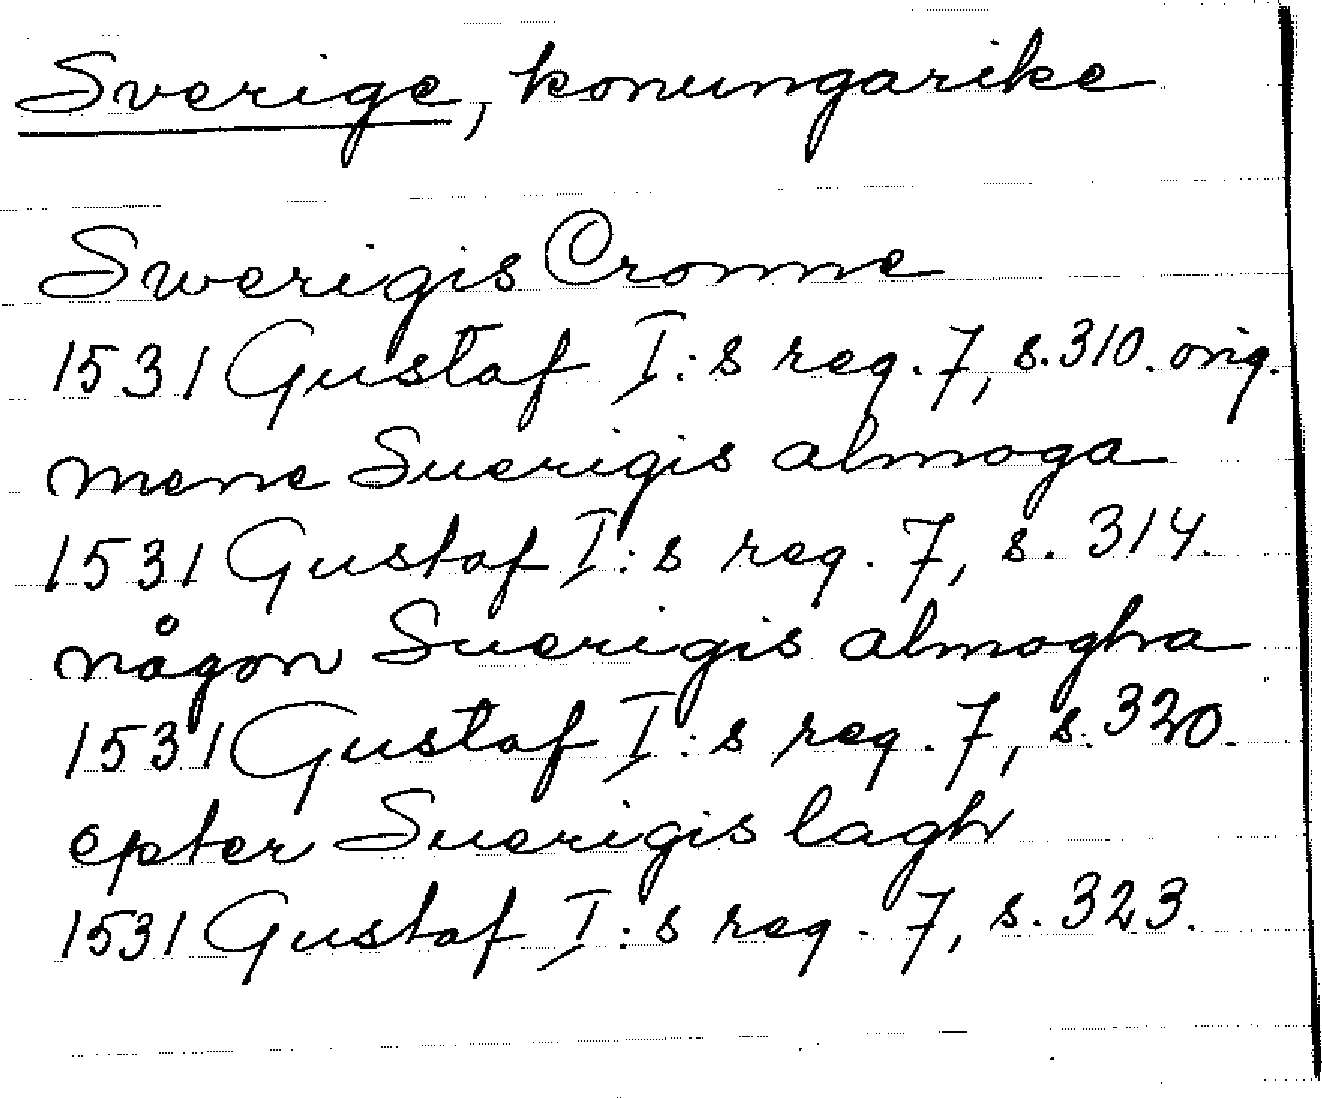 Sverige, konungarike
Swerigis Cronne
1531 Gustaf I:s reg. 7, s. 310. orig.
mene Suerigis almoga
1531 Gustaf I:s reg. 7, s. 314.
någon Suerigis almogha
1531 Gustaf I:s reg. 7, s. 320.
epter Suerigis lagh
1531 Gustaf I:s reg. 7, s. 323.